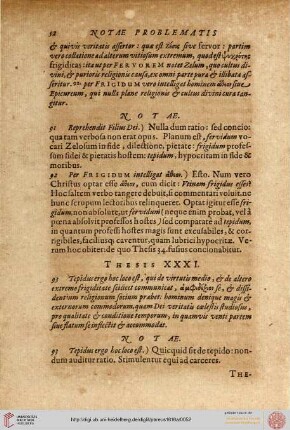 52 NOTAE PROBLEMATIS
& quivis veritatis assertor: qua est Zeus sive fervor: partim
vero collatione ad alterum vitiosum extremum, quod est
frigiditas: ita ut per FERVOREM notet Zelum, quo cultus di-
vini, & purioris religionis causa, ex omni parte pura & illibata as-
seritur. per FRIGIDUM vero intelligat hominem sive
Epicureum, qui nulla plane religionis & cultus divini cura tan-
gitur.
NOTAE.
91 Reprehendit Filius Dei.) Nulla dum ratio: sed concio:
quam verbosa non erat opus. Planum est, fervidum vo-
cari Zelosum in fide, dilectione, pietate: frigidum profes-
sum fidei & pietatis hostem: tepidum, hypocritam in fide &
moribus.
92 Per FRIGIDUM intelligat .) Esto. Num vero
Christus optat esse , cum dicit: Utinam frigidus esses?
Hoc saltem verbo tangere debuit, si commentari voluit, ne
hunc scrupulum lectoribus relinqueret. Optat igitur esse fri-
gidum, non absolute, ut fervidum (neque enim probat, vel à
poena absolvit professos hostes) sed comparate ad tepidum,
in quantum professi hostes magis sunt excusabiles, & cor-
rigibiles, faciliusq; caventur, quam lubrici hypocritae. Ve-
rum hoc obiter: de quo Thesis 34. fusius concionabitur.
THESIS XXXI.
93 Tepidus ergo hoc loco est, qui de virtatis medio, & de altero
extremo frigiditate scilicet communicat, se, & dissi-
dentium religionum statim praebet hominem denique magis &
externorum commodorum, quam Dei veritatis caelestis studiosus,
pro qualitate & conditione temporum, in quamvis venti partem
sive flatum se inflectit & accommodat.
NOTAE.
93 Tepidus ergo hoc loco est.) Quicquid sit de tepido: non-
dum auditur ratio. Stimulentur equi ad carceres.
THE-
http://digi.ub.uni-heidelberg.de/diglit/pareus1618a/0052